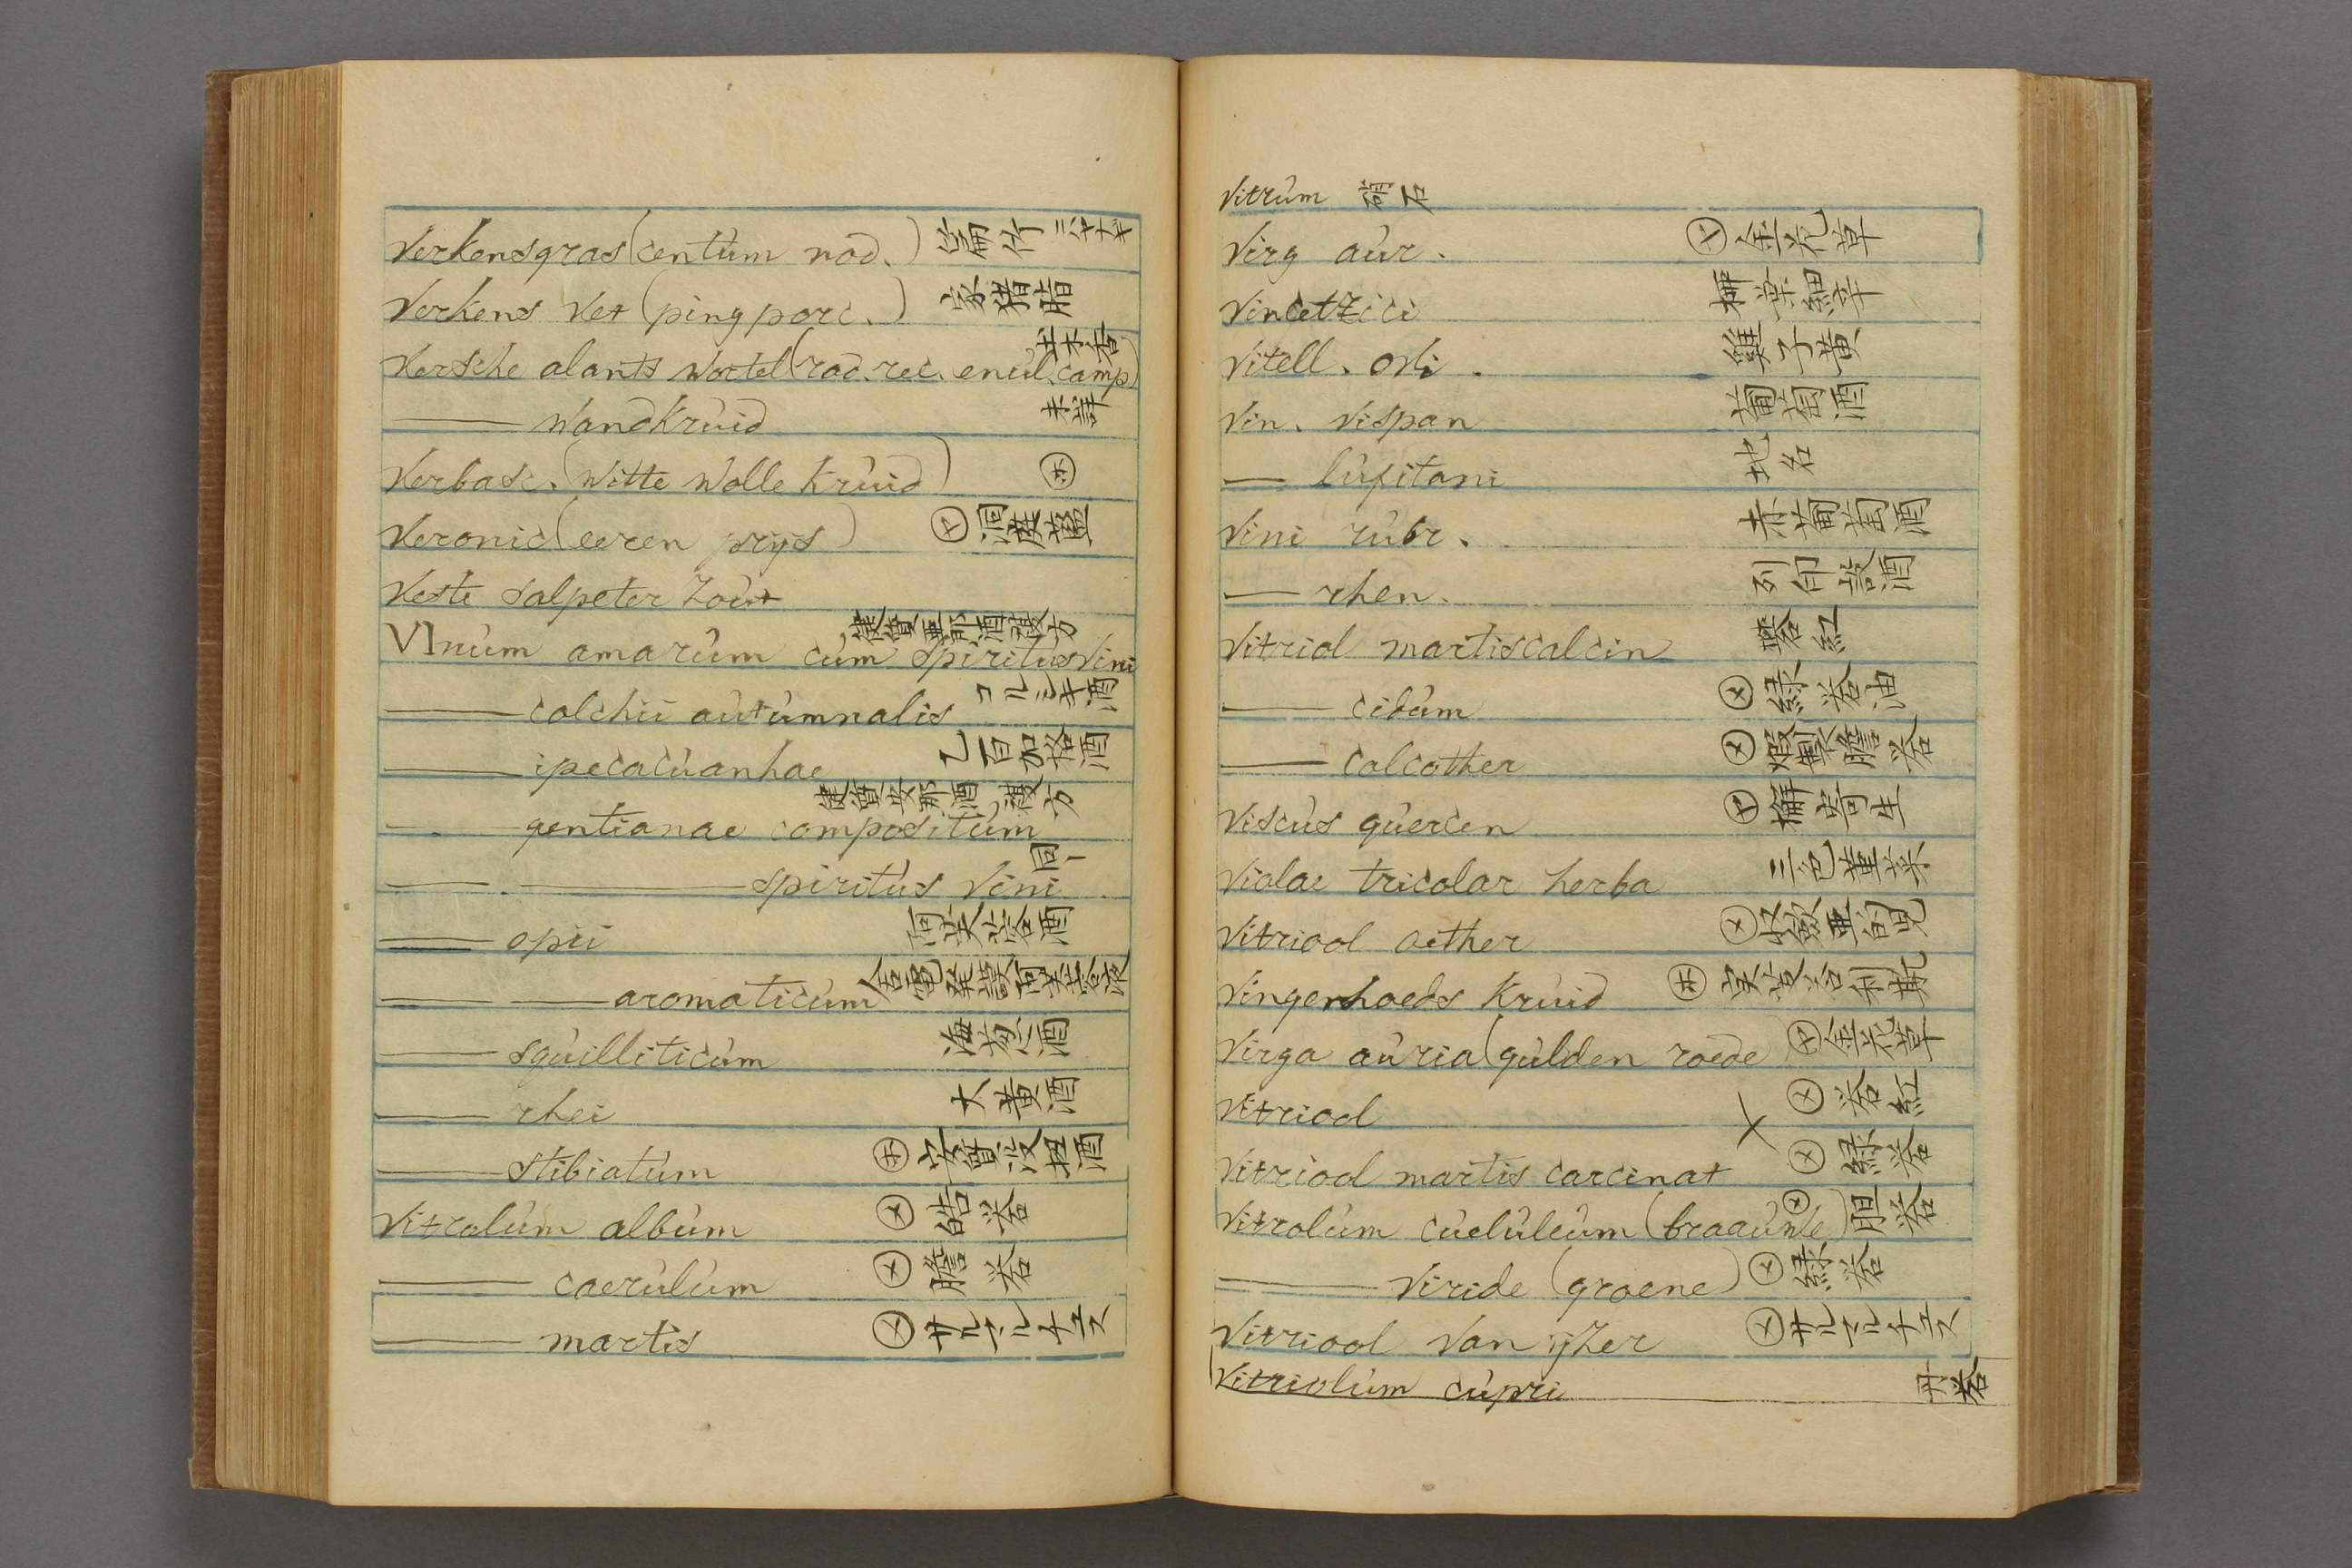 Verkensgras (centum nod.) 萹竹 ニハヤナギ
Verkens vet (ping porc.) 家猪脂
Versche alants wortel (rad. rec. enul. camp) 土木香
—— wandkruid 未詳
Verbasc. (witte wolle kruid) ㋭
Veronic (eeren prijs) ㋪
Veste salpeter zout
VInum amarum cum spiritus vini 健質亜那酒複方
—— colchii autumnalis コルシキ酒
—— ipecacuanhae 乙百加格酒
—— gentianae compositum 健質安那酒複方
—— —— spiritus vini 同
—— opii 阿芙蓉酒
—— —— aromaticum
—— squilliticum 海葱酒
—— rhei 大黄酒
—— stibiatum ㋭
Vitrolum album ㋱ 皓礬
—— caerulum ㋱ 膽礬
—— martis ㋱ サルマルチュス
Vitrum 硝石
Virg aur. ㋪ 金花草
Vincetzici 柳葉細辛
Vitell. ovi. 雞子黄
Vin. vispan 葡萄酒
— lusitani 地名
Vini rubr. 赤葡萄酒
— rhen. 列印設酒
Vitriol martiscalcin 礬紅
—— cidum ㋱ 緑礬油
—— calcother ㋱ 煆製膽礬
Viscus quercen ㋪ 槲寄生
Violae tricolar herba 三色菫菜
Vitriool aether ㋱
Vingerhoeds kruid ㋭ 実芰答利斯
Virga auria (gulden roede ㋪ 金花草
Vitriool ㋱ 礬紅
Vitriool martis carcinat ㋱ 緑礬
Vitrolum cueluleum (braauwle) ㋱ 胆礬
—— viride (groene) ㋱ 緑礬
Vitriool van ijzer ㋱ サルマルチュス
Vitriolum cupri 丹礬